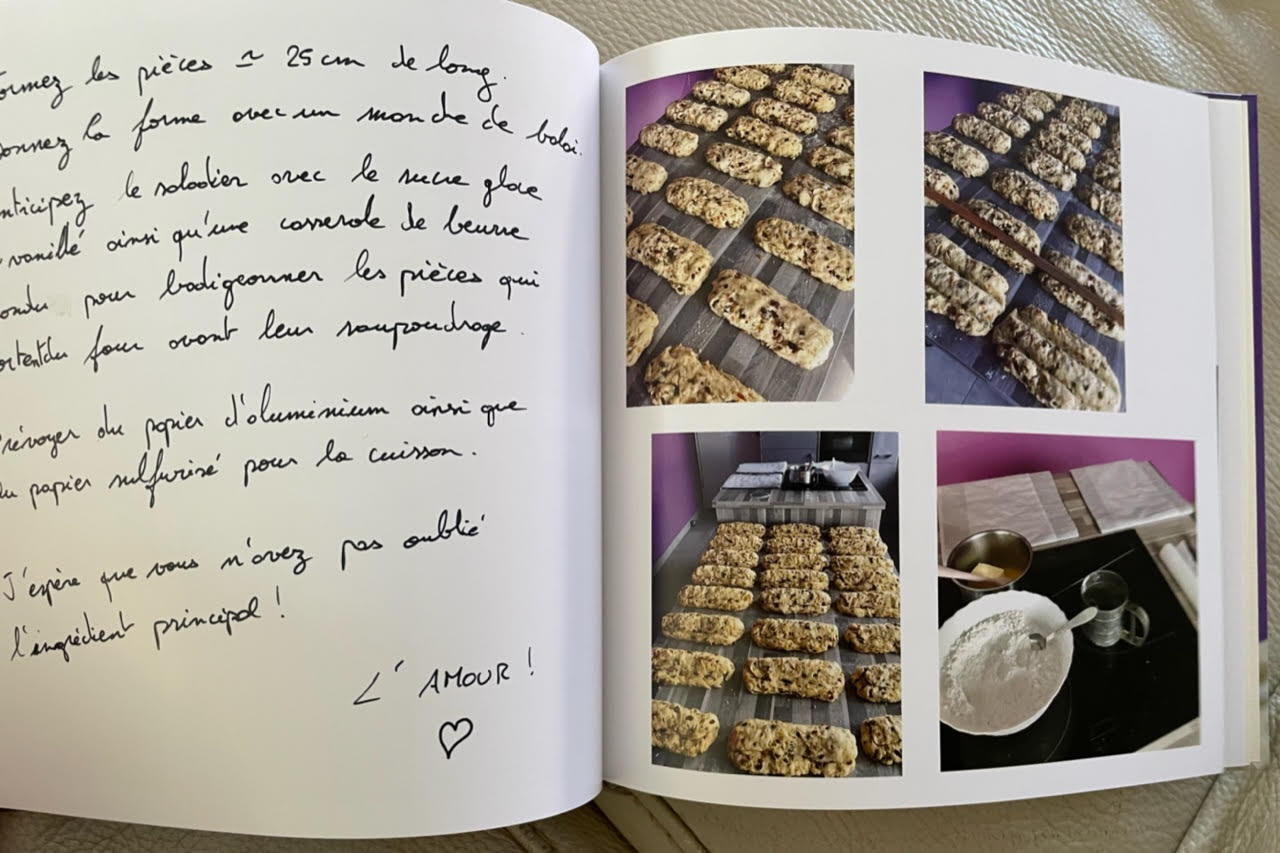 ormez les pièces ≃ 25 cm de long.
onnez la forme avec un manche de balai.
nticipez le saladier avec le sucre glace
vanillé ainsi qu'une casserole de beurre
ondu pour badigeonner les pièces qui
ortent du four avant leur saupoudrage.
révoyer du papier d'aluminium ainsi que
du papier sulfurisé pour la cuisson.
J'espère que vous n'avez pas oublié
l'ingrédient principal !
L'AMOUR !